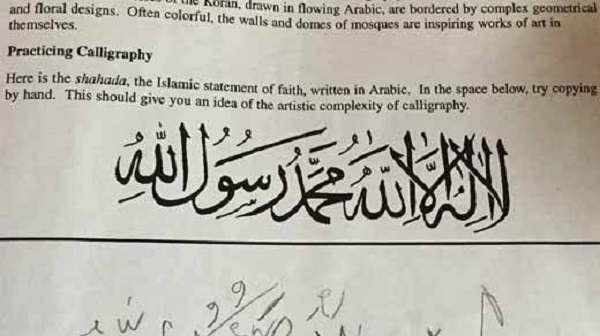 the Koran, drawn in flowing Arabic, are bordered by complex geometrical
and floral designs. Often colorful, the walls and domes of mosques are inspiring works of art in
themselves.
Practicing Calligraphy
Here is the shahada, the Islamic statement of faith, written in Arabic. In the space below, try copying
by hand. This should give you an idea of the artistic complexity of calligraphy.
لا إله إلا الله محمد رسول الله